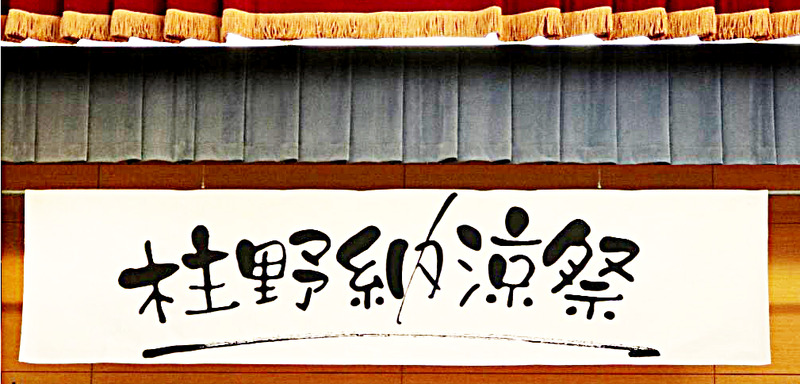 桂野納涼祭